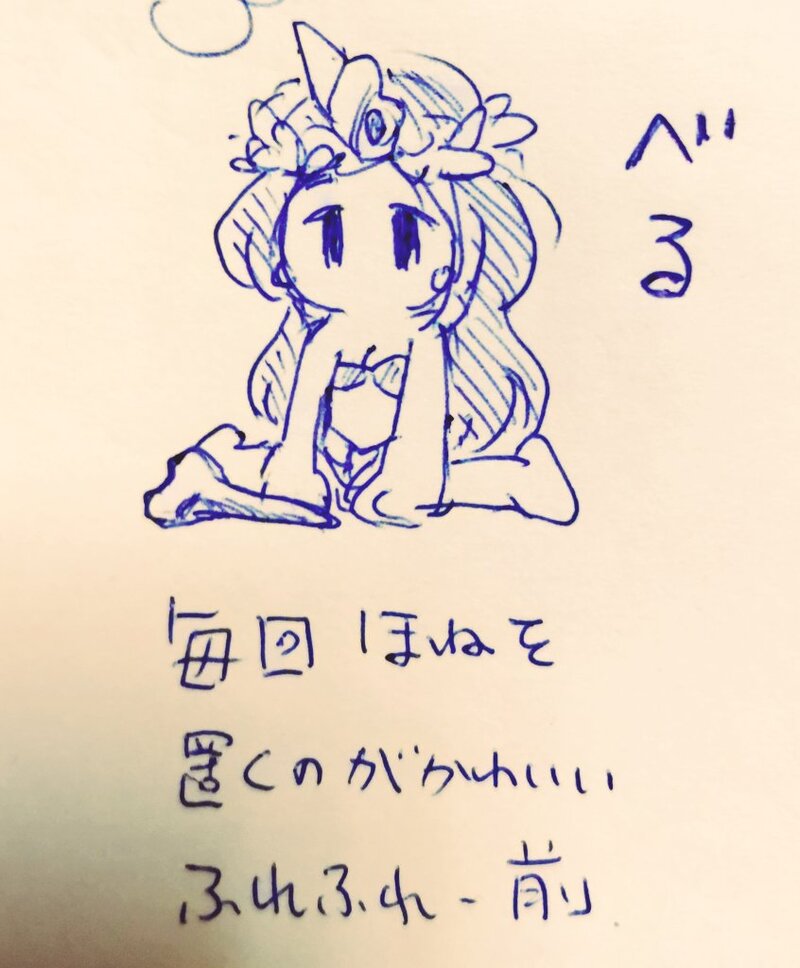 べる
毎回ほねを
置くのがかわいい
ふれふれー前